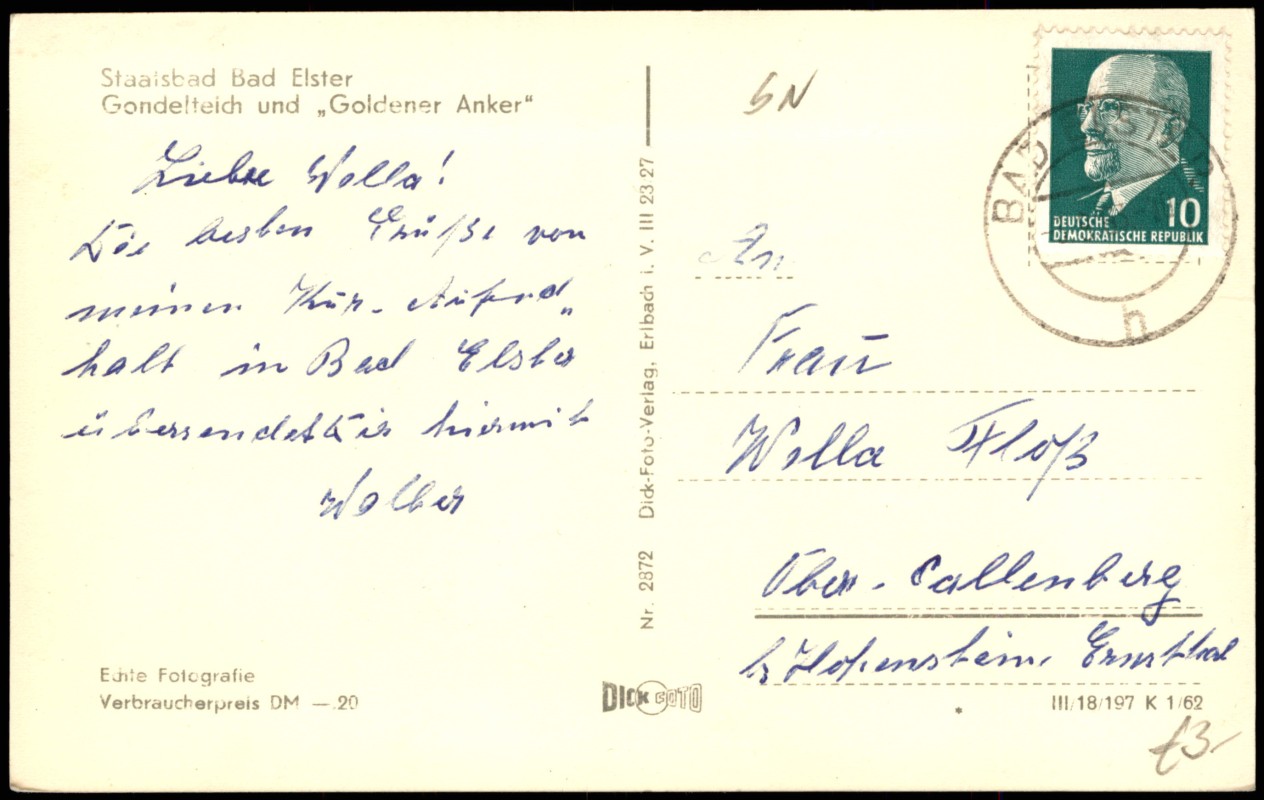 Staatsbad Bad Elster
Gondelteich und „Goldener Anker“
Liebe Wella!
Die besten Grüße von
meinen Kur-Aufend„
halt in Bad Elster
übersendet Dir hiermit
Walter
Echte Fotografie
Verbraucherpreis DM —.20
Nr. 2872 Dick-Foto-Verlag, Erlbach i. V. III 23 27
DICK FOTO
BAD ELSTER
h
10
DEUTSCHE
DEMOKRATISCHE REPUBLIK
An
Frau
Wella Floß
Ober-Callenberg
b/ Hohenstein, Ernstthal
III/18/197 K 1/62